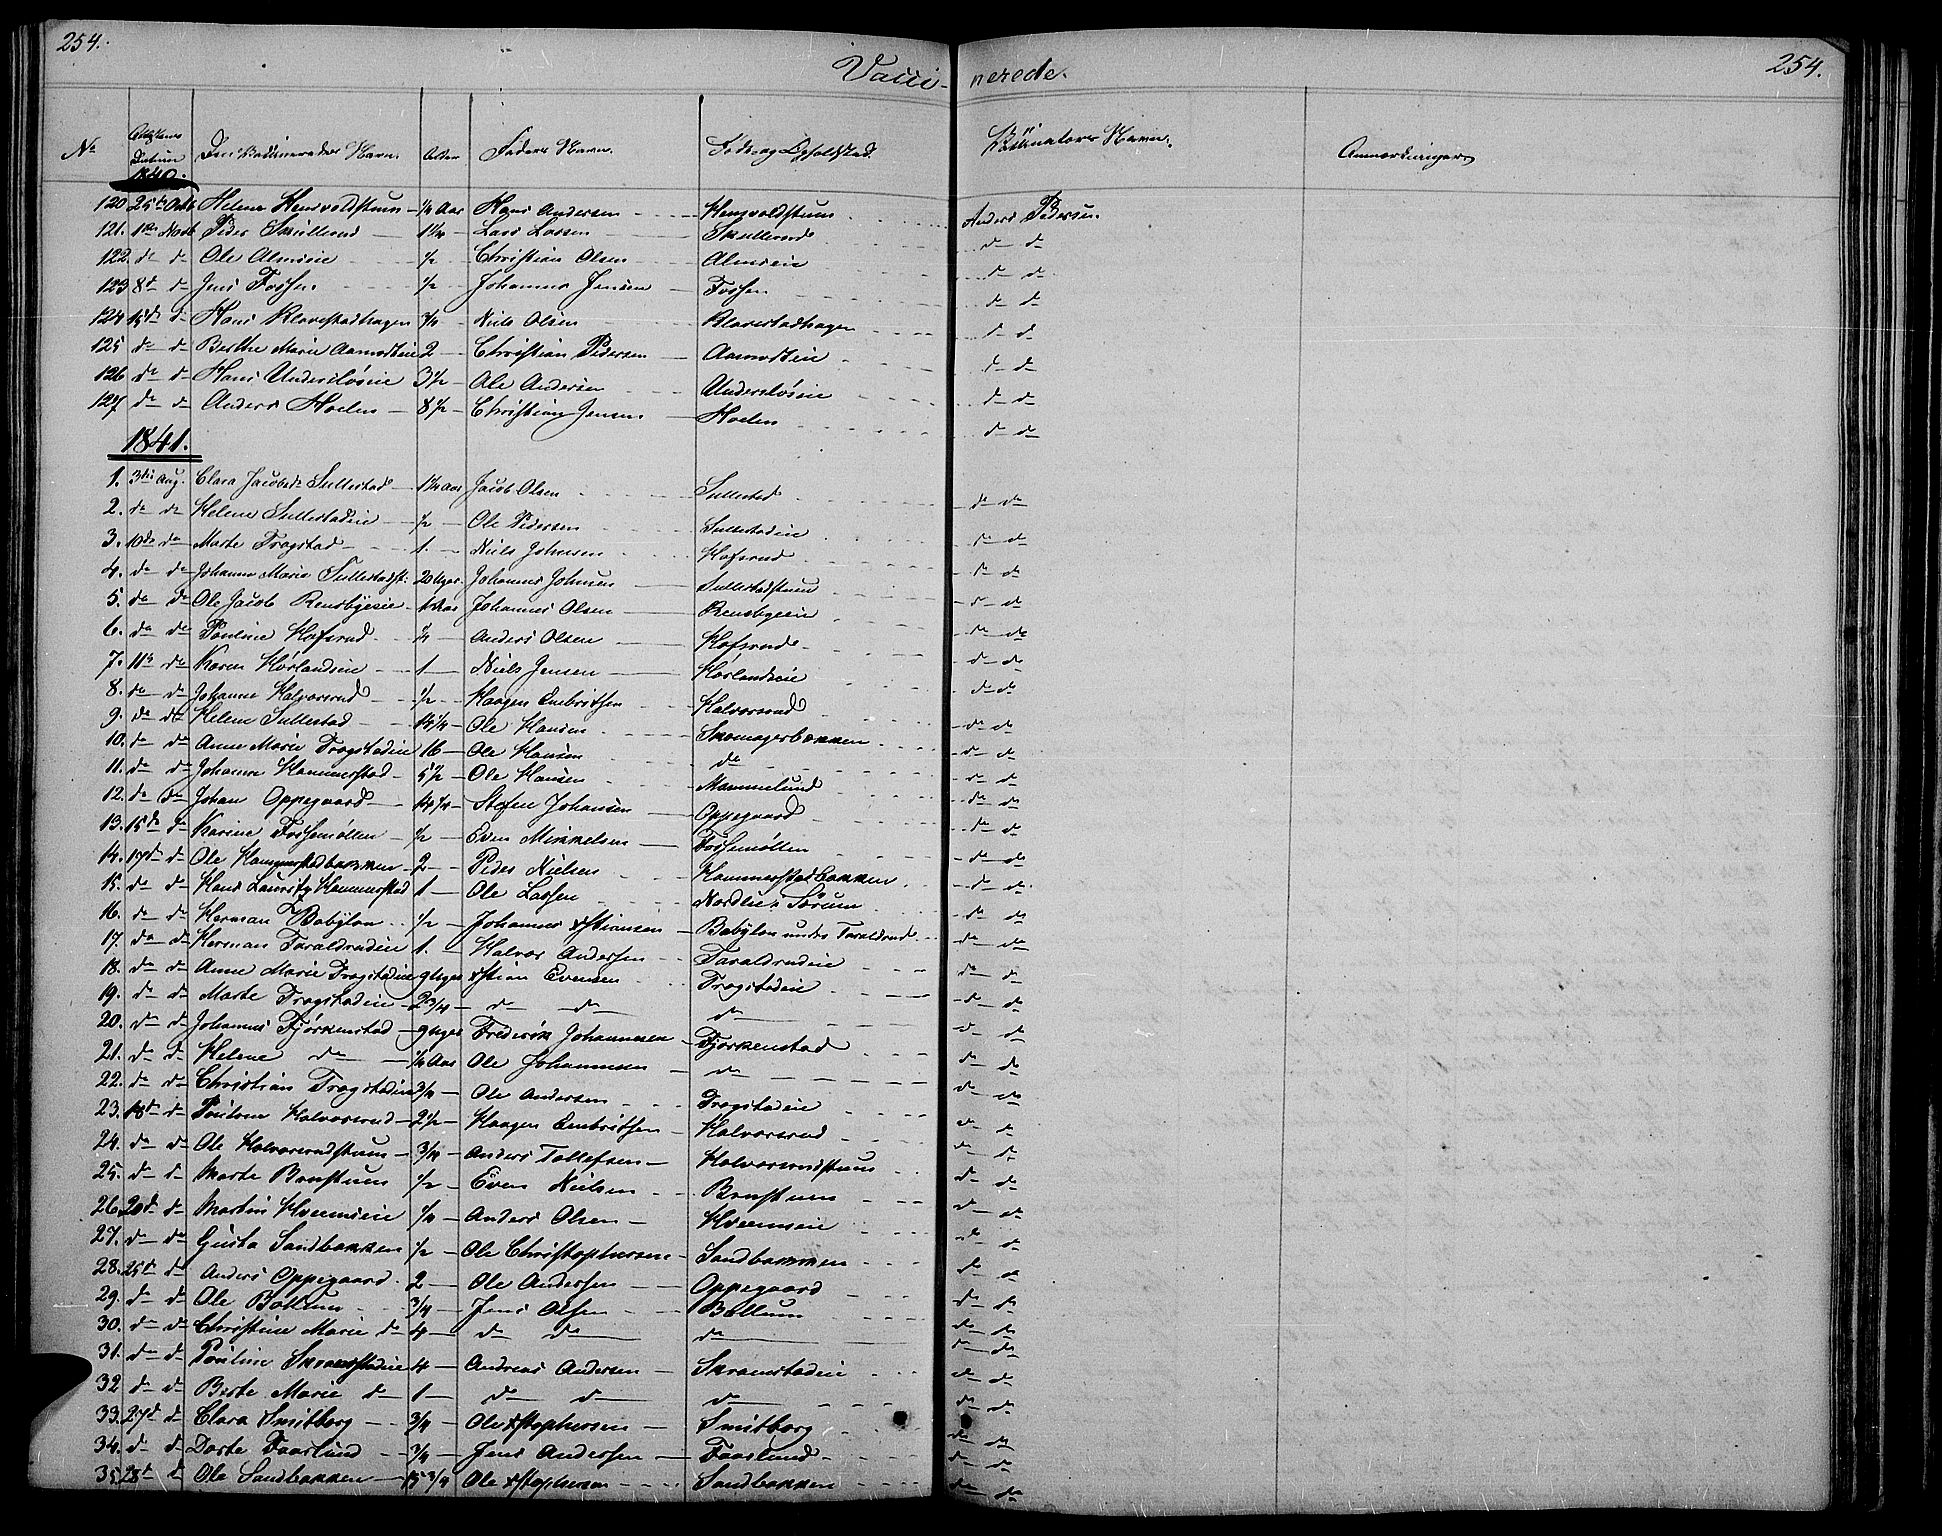 254. Vacci- nerede. 254.
No Attestens Datum Den Vaccineredes Navn. Alder Faders Navn. Føde og Opholdsted. Vaccinators Navn. Anmærkninger
1840.
120 25de Octb Helene ¼ Aar Hans Andersen Anders Pedersen.
121. 1ste Novb Peder Skullerud 1¼ Lars Larsen Skullerud do do
122. do do Ole Almeie ½ Christian Olsen Almeie do do
123 8de do Jens Fossen ½ Johannes Jensen Fossen do do
124 15de do Hans Klavestadhagen ¾ Niels Olsen Klavestadhagen do do
125 do do Berthe Marie Aamodteie 2 Christian Pedersen Aamodteie do do
126 do do Hans Undersløseie 3½ Ole Andersen Undersløseie do do
127 do do Anders Holen 8½ Christian Jensen Holen do do
1841.
1. 3die Aug. Clara Jacobsd. Sullestad 1¼ Aar Jacob Olsen Sullestad do do
2. do do Helene Sullestadeie ½ Ole Pedersen Sullestadeie do do
3. 10de do Marte Trogstad 1. Niels Johnsen Hafsrud do do
4. do do Johanne Marie Sullestadst. 20 Uger. Johannes Johnsen Sullestadstuen do do
5. do do Ole Jacob Rensbyeie Aar Johannes Olsen Rensbyeie do do
6. do do Pauline Hafsrud ¼ Anders Olsen Hafsrud do do
7. 11te do Karen Hørlandeie 1 Niels Jensen Hørlandseie do do
8. do do Johanne Halvorsrud ½ Haagen Embritsen Halvorsrud do do
9. do do Helene Sullestad 14¼ Ole Hansen Skomagerbakken do do
10. do do Anne Marie Trogstadeie 16 Ole Hansen do do do
11. do do Johanne Hammerstad 5½ Ole Hansen Mammelund do do
12. do do Johan Oppegaard 14¼ Stefen Johansen Oppegaard do do
13. 15de do Karine Fossemøllen ½ Even Mikkelsen Fossemøllen do do
14. 17de do Ole Hammerstadbakken 2 Peder Nielsen Hammerstadbakken do do
15. do do Hans Lauritz Hammerstad 1 Ole Larsen Nordlie i Sørum do do
16. do do Herman Babylon ½ Johannes Xstiansen Babylon under Taraldrud do do
17. do do Herman Taraldrudeie 1. Halvor Andersen Taraldrudeie do do
18. do do Anne Marie Trogstadeie 9 Uger Xstian Evensen Trogstadeie do do
19. do do Marte Trogstadeie 2¾ do do do do do
20. do do Johannes Fjørkenstad 9 Uger Frederik Johannesen Fjørkenstad do do
21. do do Helene do ¼ Aar Ole Johannesen do do do
22. do do Christian Trogstadeie ¾ Ole Andersen Trogstadeie do do
23. 18de do Pauline Halvorsrud 2½ Haagen Embritsen Halvorsrud do do
24. do do Ole Halvorsrudstuen ¾ Anders Tollefsen Halvorsrudstuen do do
25. do do Marte Bonstuen ½ Even Nielsen Bonstuen do do
26. 20de do Martin Hvemseie ¼ Anders Olsen Hvemseie do do
27. do do Gusta Sandbakken ½ Ole Christophersen Sandbakken do do
28. 25de do Anders Oppegaard 2 Ole Andersen Oppegaard do do
29. do do Ole Ballum ¾ Jens Olsen Ballum do do
30. do do Christine Marie do 4 do do do do do
31. do do Pauline Skramstadeie 4 Andreas Andersen Skramstadeie do do
32 do do Berte Marie do 1 do do do do do
33. 27de do Clara Smitborg ¾ Ole Xstophersen Smitborg do do
34. do do Dorte Faaslund ¾ Jens Andersen Faaslund do do
35. 28de do Ole Sandbakken 15¾ Ole Xstophersen Sandbakken do do